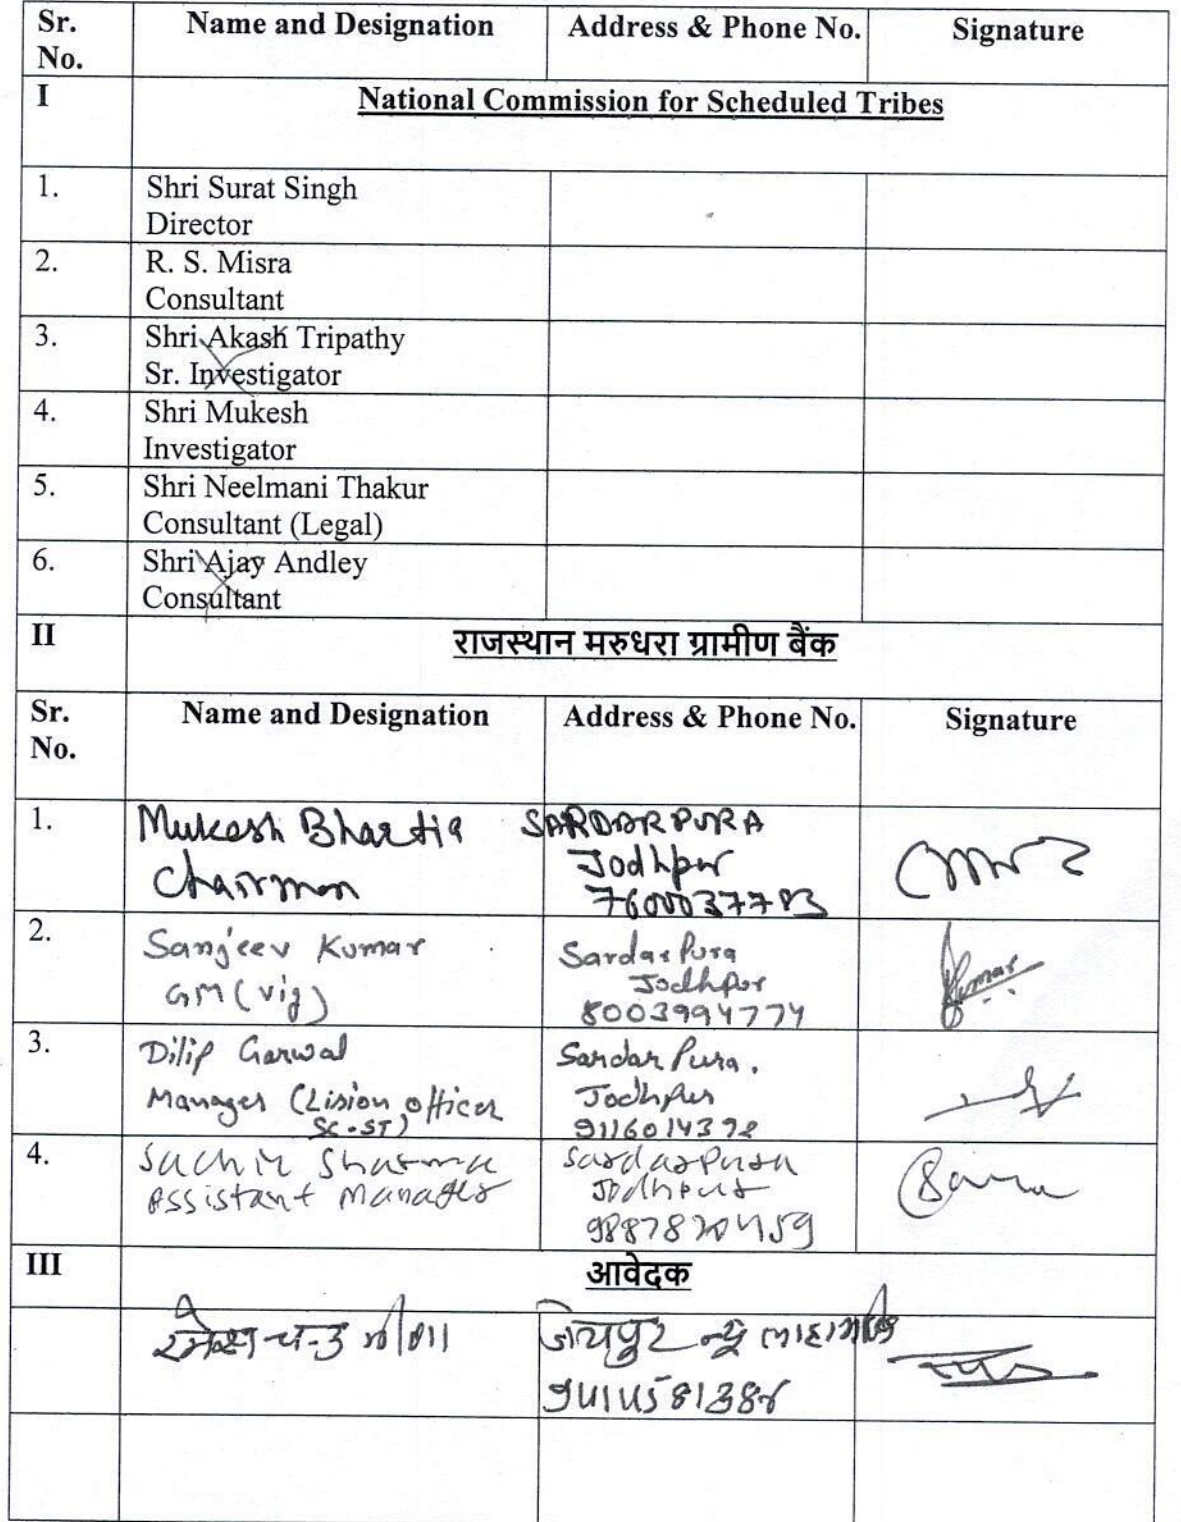 Sr. No. Name and Designation Address & Phone No. Signature
I National Commission for Scheduled Tribes
1. Shri Surat Singh
Director
2. R. S. Misra
Consultant
3. Shri Akash Tripathy
Sr. Investigator
4. Shri Mukesh
Investigator
5. Shri Neelmani Thakur
Consultant (Legal)
6. Shri Ajay Andley
Consultant
II राजस्थान मरुधरा ग्रामीण बैंक
Sr. No. Name and Designation Address & Phone No. Signature
1. Mukesh Bhartia SARDARPURA
Chairman Jodhpur
7600037783
2. Sanjeev Kumar SardarPura
GM (vig) Jodhpur
8003994774 Kumar
3. Dilip Garwal Sardar Pura.
Manager (Lision officer Jodhpur
SC-ST) 9116014392
4. Sachin Sharma SardarPura
Assistant Manager Jodhpur
III आवेदक
रमेश चन्द्र मीणा जयपुर न्यू